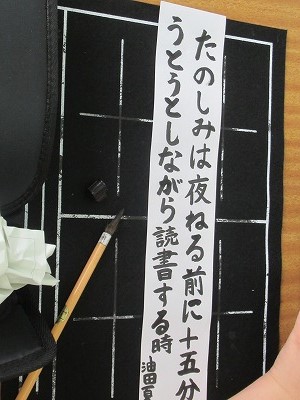 たのしみは夜ねる前に十五分
うとうとしながら読書する時
油田